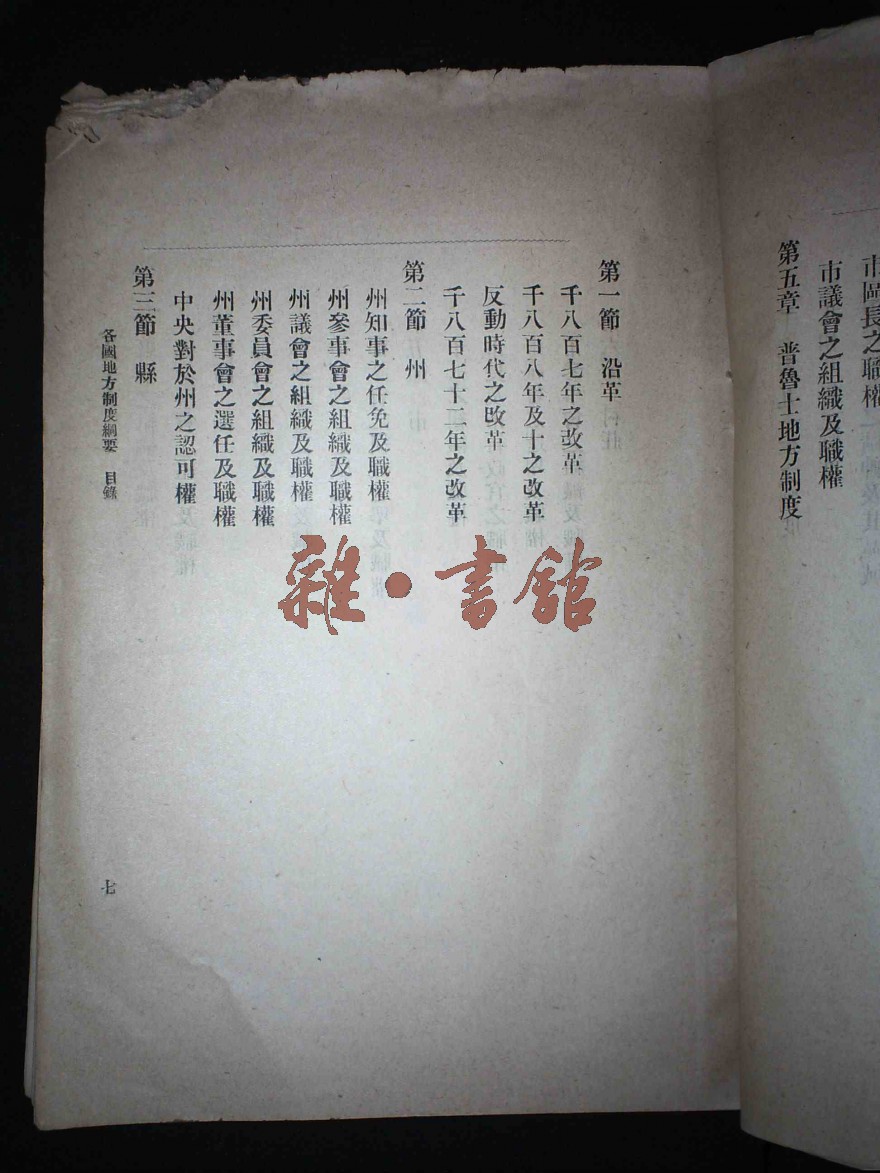 市岡長之職權
市議會之組織及職權
第五章 普魯士地方制度
第一節 沿革
千八百七年之改革
千八百八年及十之改革
反動時代之改革
千八百七十二年之改革
第二節 州
州知事之任免及職權
州參事會之組織及職權
州議會之組織及職權
州委員會之組織及職權
州董事會之選任及職權
中央對於州之認可權
第三節 縣
各國地方制度綱要 目錄
七
雜·書館